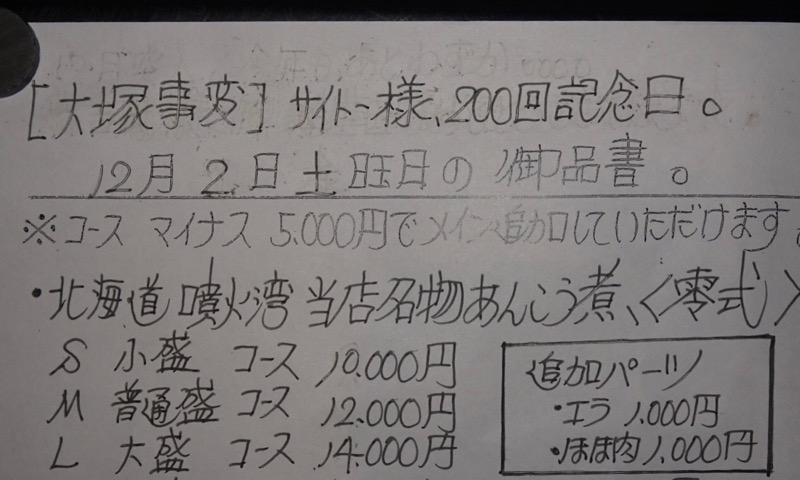 [大塚事変] サイトー様、200回記念日。
12月2日土曜日の御品書。
※コース マイナス 5.000円でメイン追加していただけます。
・北海道噴火湾 当店名物あんこう煮、〈零式〉
S 小盛 コース 10.000円
M 普通盛 コース 12.000円
L 大盛 コース 14.000円
追加パーツ
・エラ 1.000円
・ほほ肉 1.000円